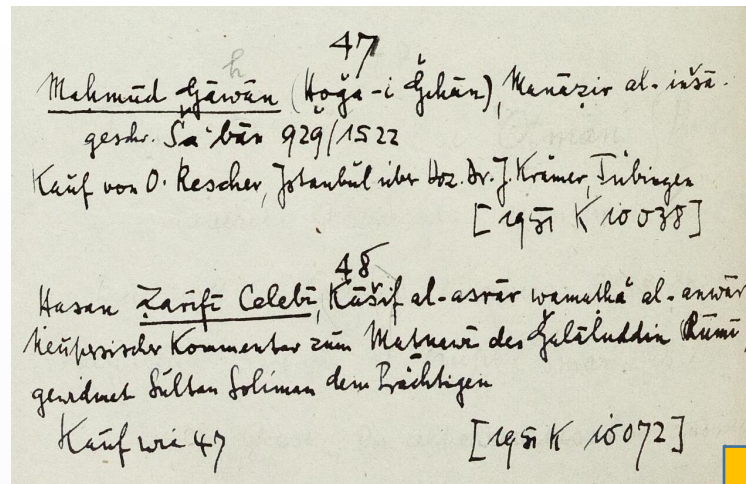 47
h
Maḥmūd Gāwān (Ḫoǧa-i Ǧehān), Manāẓir al-inšā.
geschr. Šaʿbān 929/1522
Kauf von O. Rescher, Istanbul über Doz. Dr. J. Krämer, Tübingen
[1951 K 10038]
48
Hasan Ẓarīfī Çelebī, Kāšif al-asrār wamaṭlaʿ al-anwār
Neupersischer Kommentar zum Maṯnawī des Ǧelāluddin Rūmī,
gewidmet Sultan Soliman dem Prächtigen
Kauf wie 47 [1951 K 10072]